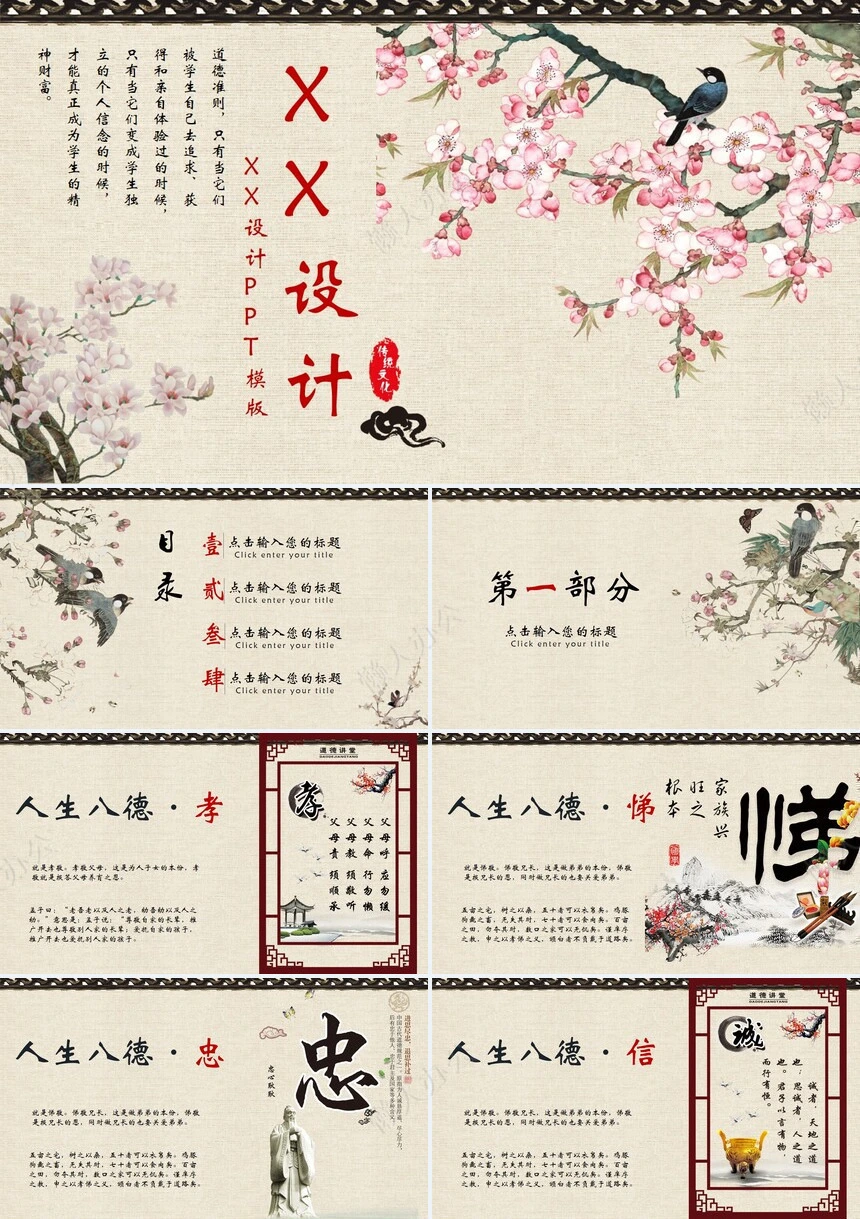 道德准则，只有当它们
被学生自己去追求、获
得和亲自体验过的时候，
只有当它们变成学生独
立的个人信念的时候，
才能真正成为学生的精
神财富。
XX设计
XX设计PPT模版
传统文化
目录
壹 点击输入您的标题
Click enter your title
贰 点击输入您的标题
Click enter your title
叁 点击输入您的标题
Click enter your title
肆 点击输入您的标题
Click enter your title
第一部分
点击输入您的标题
Click enter your title
人生八德·孝
就是孝敬。孝敬父母，这是为人子女的本份，孝
敬就是报答父母养育之恩。
孟子曰：“老吾老以及人之老，幼吾幼以及人之
幼。”意思是：孟子说：“尊敬自家的长辈，推
广开去也尊敬别人家的长辈；爱抚自家的孩子，
推广开去也爱抚别人家的孩子。
道德讲堂
DAODEJIANGTANG
孝
父母呼 应勿缓
父母命 行勿懒
父母教 须敬听
父母责 须顺承
人生八德·悌
就是悌敬。悌敬兄长，这是做弟弟的本份，悌敬
是报兄长的恩，同时做兄长的也要关爱弟弟。
五亩之宅，树之以桑，五十者可以衣帛矣。鸡豚
狗彘之畜，无失其时，七十者可以食肉矣。百亩
之田，勿夺其时，数口之家可以无饥矣。谨庠序
之教，申之以孝悌之义，颁白者不负戴于道路矣。
家族兴
旺之
根本
悌
人生八德·忠
就是悌敬。悌敬兄长，这是做弟弟的本份，悌敬
是报兄长的恩，同时做兄长的也要关爱弟弟。
五亩之宅，树之以桑，五十者可以衣帛矣。鸡豚
狗彘之畜，无失其时，七十者可以食肉矣。百亩
之田，勿夺其时，数口之家可以无饥矣。谨庠序
之教，申之以孝悌之义，颁白者不负戴于道路矣。
忠心耿耿
忠
进思尽忠，退思补过
人生八德·信
就是悌敬。悌敬兄长，这是做弟弟的本份，悌敬
是报兄长的恩，同时做兄长的也要关爱弟弟。
五亩之宅，树之以桑，五十者可以衣帛矣。鸡豚
狗彘之畜，无失其时，七十者可以食肉矣。百亩
之田，勿夺其时，数口之家可以无饥矣。谨庠序
之教，申之以孝悌之义，颁白者不负戴于道路矣。
道德讲堂
DAODEJIANGTANG
诚
诚者，天地之道
也；思诚者，人之道
也。君子以言有物，
而行有恒。